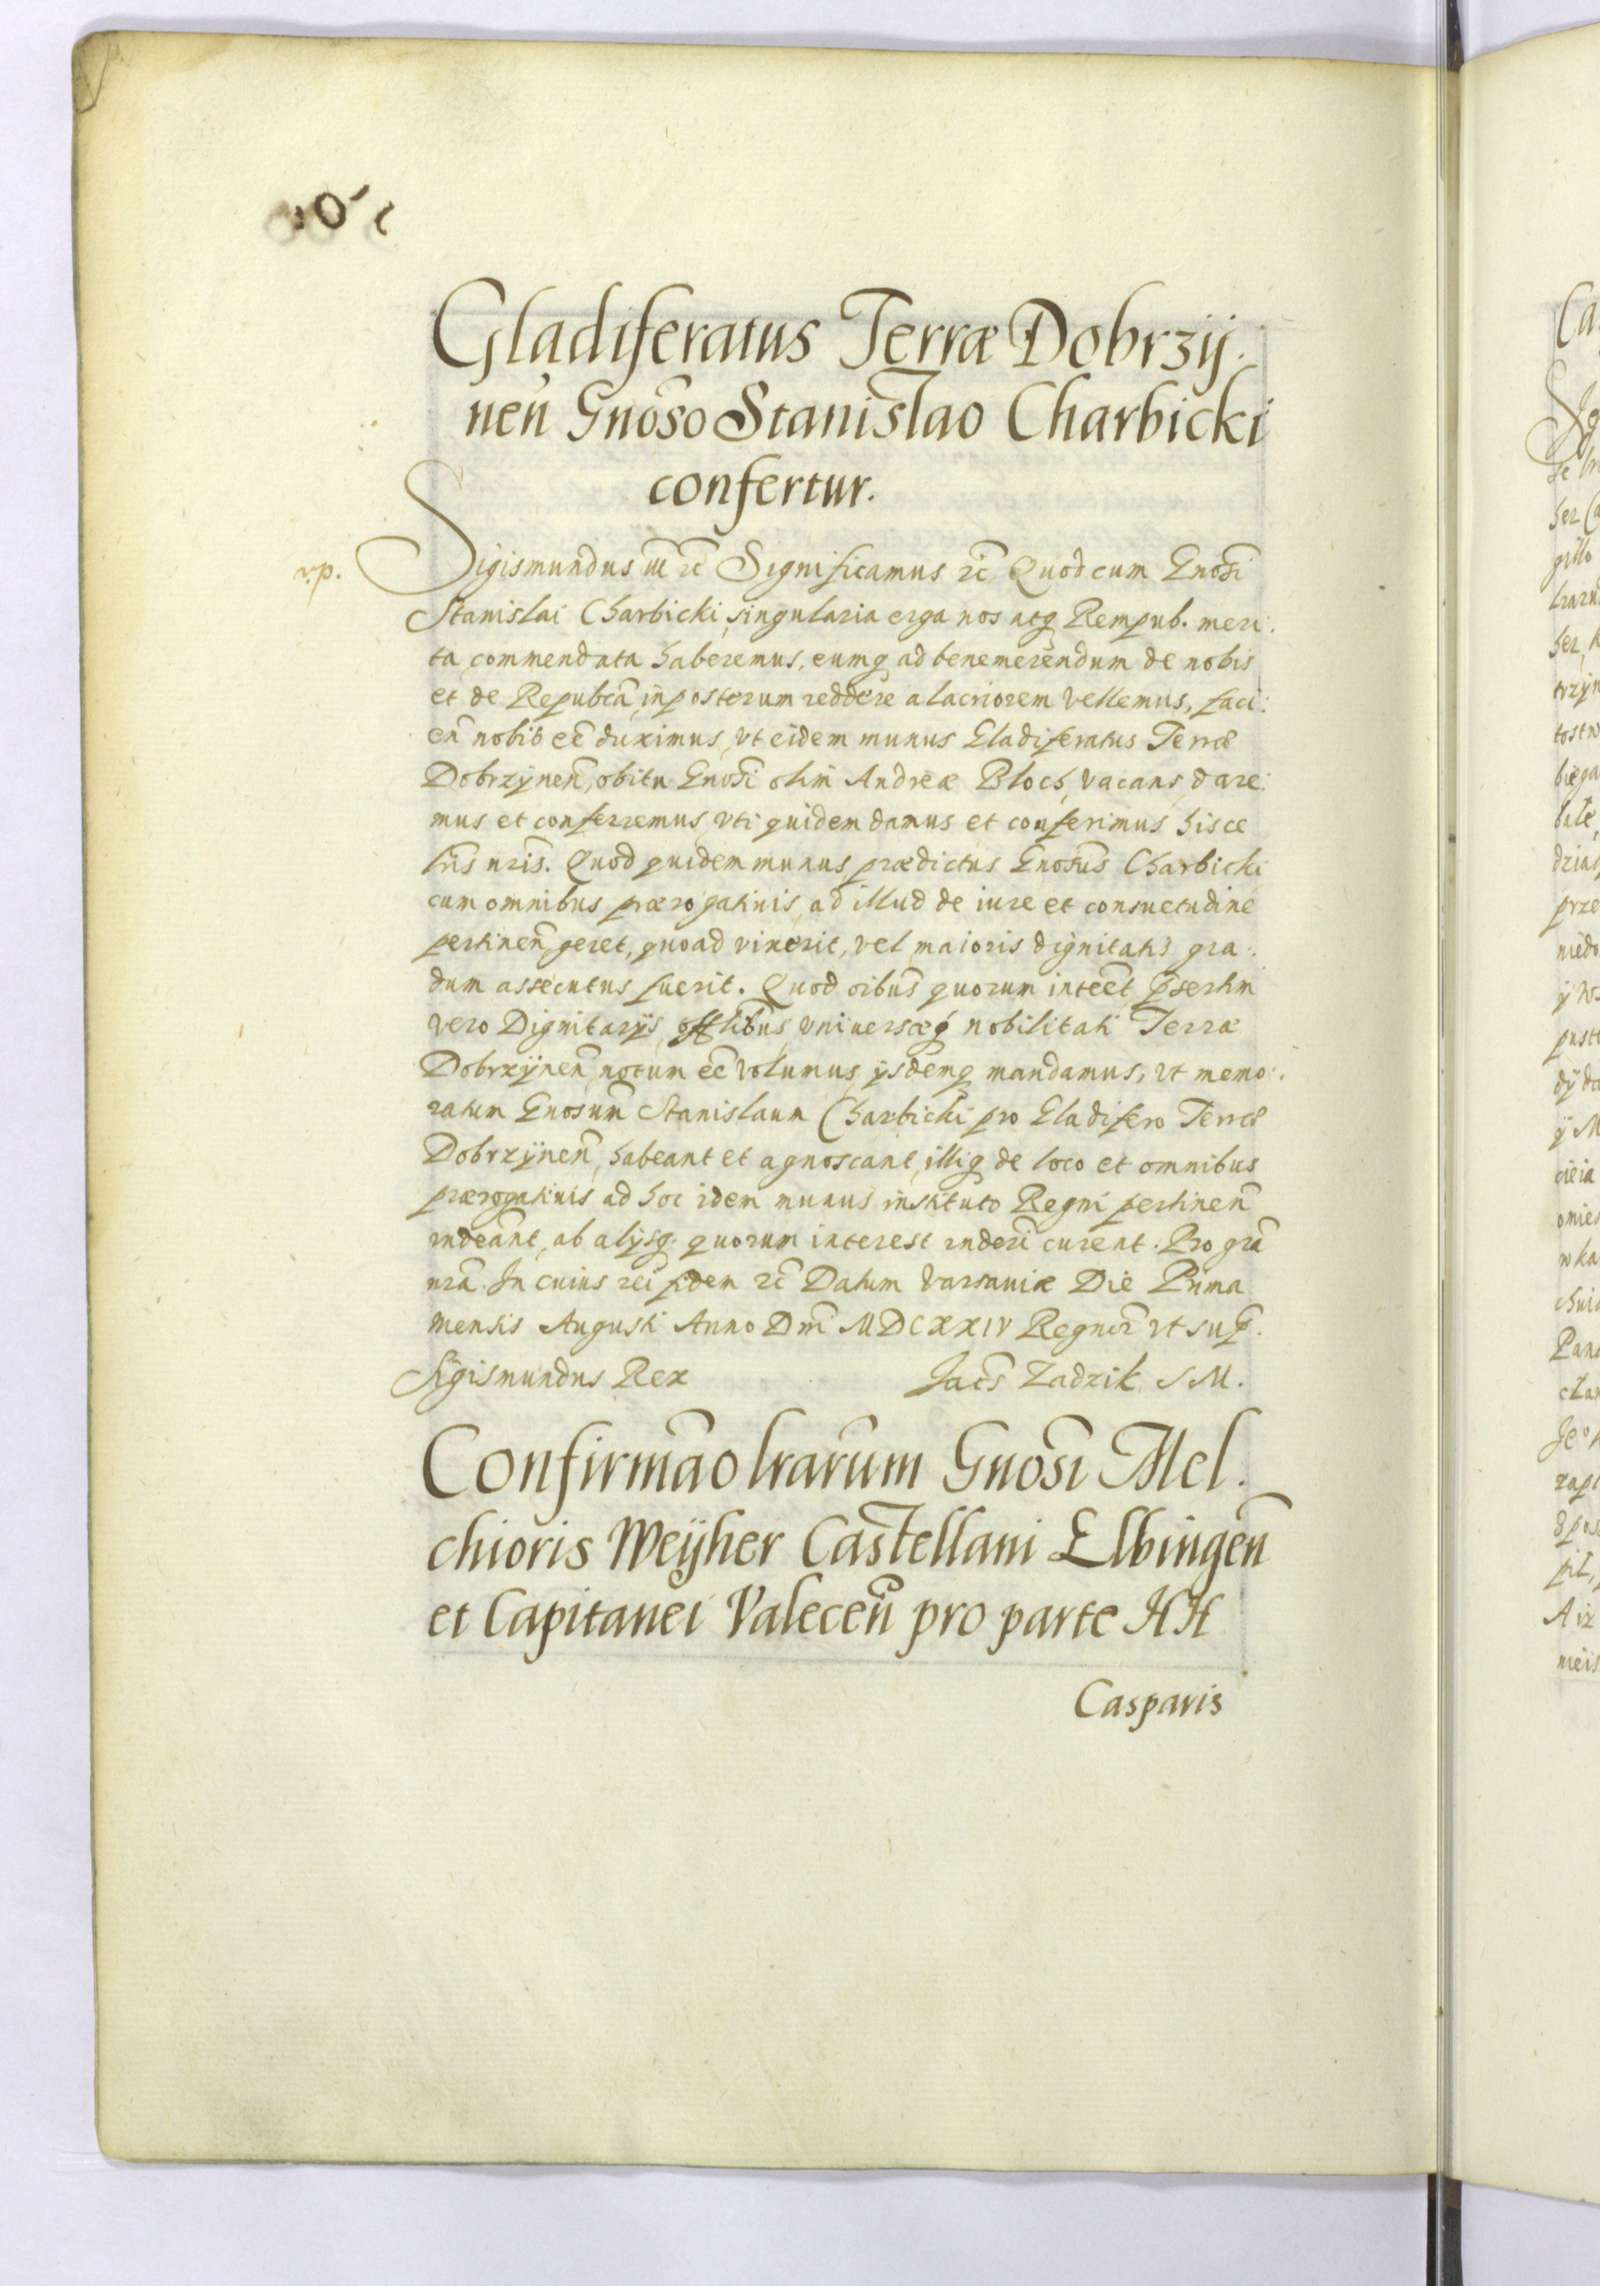 Gladiferatus Terræ Dobrzÿ.
nen̄ Gnõso Stanislao Charbicki
confertur.
v.p.
Sigismundus iii rc̃ Significamus rc̃ Quod cum Gnosi
Stanislai Charbicki, singularia erga nos atq Rempub. meri:
ta commendata haberemus, eumq ad benemerendum de nobis
et de Repubca, in posterum reddere alacriorem vellemus, faci:
en̄ nobis eē duximus, vt eidem munus Gladiferatus Terræ
Dobrzÿnen̄, obitu Gnosi olim Andreæ Bloch, vacans, dare:
mus et conferremus, vti quidem damus et conferimus hisce
lris nris. Quod quidem munus, prædictus Gnosus Charbicki
cum omnibus prærogatiuis, ad illud de iure et consuetudine
pertinen̄ geret, quoad vixerit, vel maioris dignitatis gra:
dum assecutus fuerit. Quod oibus quorum inteēt psertim
vero Dignitarÿs, offlibus, vniuersæq nobilitati Terræ
Dobrzÿnen̄, notum eē volumus, ÿsdemq mandamus, vt memo:
ratum Gnosum Stanislaum Charbicki pro Gladifero Terræ
Dobrzÿnen̄, habeant et agnoscant, illiq de loco et omnibus
prærogatiuis ad hoc idem munus instituto Regni pertinen̄
rndeant, ab alÿsq quorum interest rnderi curent. Pro gra
nra. In cuius rei fidem rc̃ Datum Varsauiæ Die Prima
Mensis Augusti Anno Dm̄i MDCXXIV Regnor̃ vt sup.
Sigismundus Rex Jacs Zadzik S M.
Confirmão lrarum Gnosi Mel.
chioris Weÿher Castellani Elbingen̄
et Capitanei Valecen̄ pro parte HH
Casparis